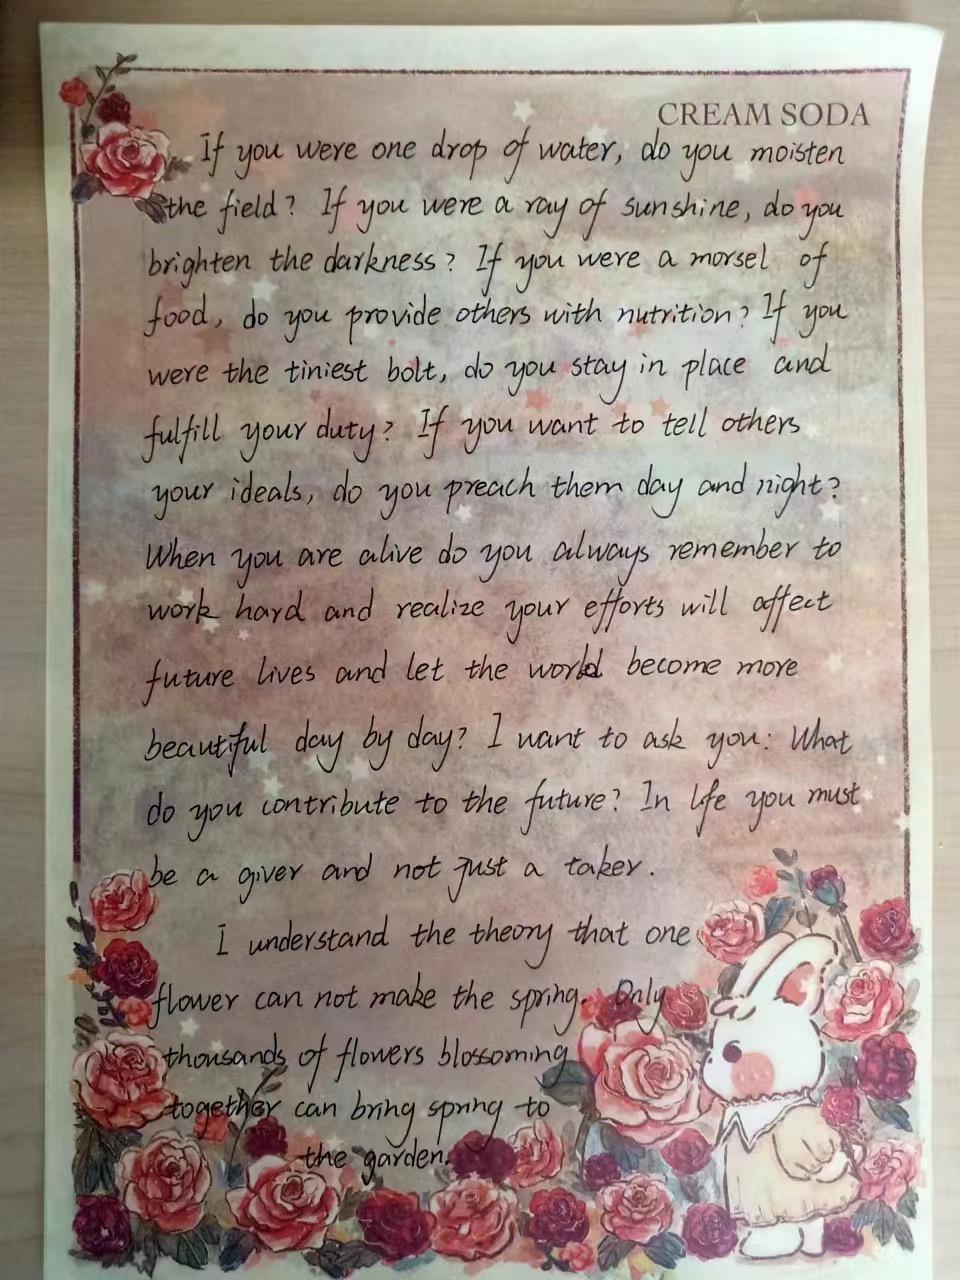 CREAM SODA
If you were one drop of water, do you moisten
the field? If you were a ray of sunshine, do you
brighten the darkness? If you were a morsel of
food, do you provide others with nutrition? If you
were the tiniest bolt, do you stay in place and
fulfill your duty? If you want to tell others
your ideals, do you preach them day and night?
When you are alive do you always remember to
work hard and realize your efforts will affect
future lives and let the world become more
beautiful day by day? I want to ask you: What
do you contribute to the future? In life you must
be a giver and not just a taker.
I understand the theory that one
flower can not make the spring. Only
thousands of flowers blossoming
together can bring spring to
the garden.